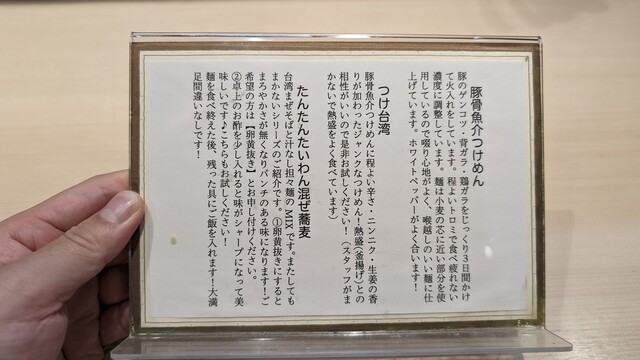 豚骨魚介つけめん
豚のゲンコツ・背ガラ・鶏ガラをじっくり3日間かけ
て火入れをしています。程よいトロミで食べ疲れない
濃度に調整しています。麺は小麦の芯に近い部分を使
用しているので啜り心地がよく、喉越しのいい麺に仕
上げています。ホワイトペッパーがよく合います!
つけ台湾
豚骨魚介つけめんに程よい辛さ・ニンニク・生姜の香
りが加わったジャンクなつけめん!熱盛(釜揚げ)との
相性がいいので是非お試しください!(スタッフがま
かないで熱盛をよく食べています)
たんたんたいわん混ぜ蕎麦
台湾まぜそばと汁なし担々麺のMIXです。またしても
まかないシリーズのご紹介です。①卵黄抜きにすると
まろやかさが無くなりパンチのある味になります!ご
希望の方は【卵黄抜き】とお申し付けください。
②卓上のお酢を少し入れると味がシャープになって美
味しいです♪こちらもお試しください!
麺を食べ終えた後、残った具にご飯を入れます!大満
足間違いなしです!